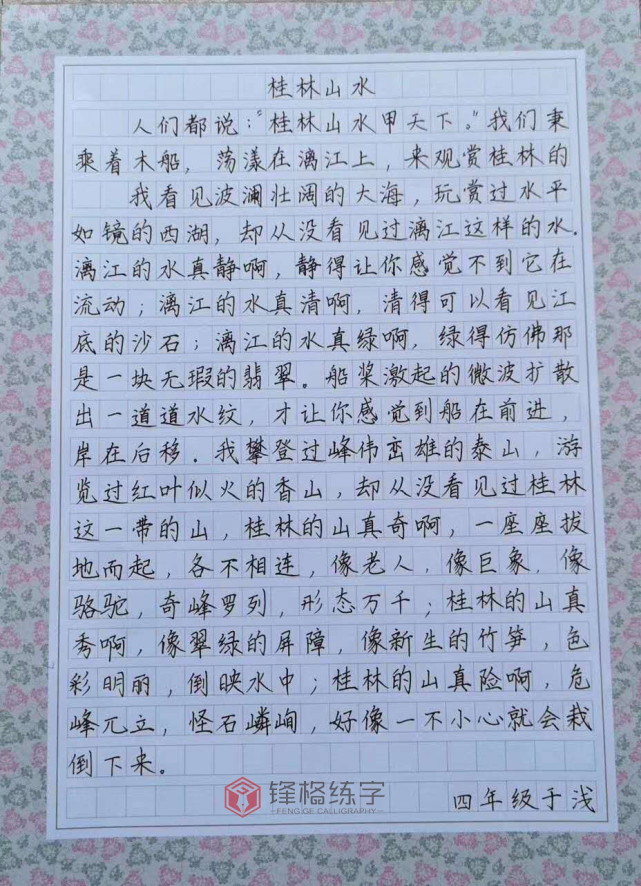 桂林山水
人们都说：“桂林山水甲天下。”我们秉
乘着木船，荡漾在漓江上，来观赏桂林的
我看见波澜壮阔的大海，玩赏过水平
如镜的西湖，却从没看见过漓江这样的水.
漓江的水真静啊，静得让你感觉不到它在
流动；漓江的水真清啊，清得可以看见江
底的沙石；漓江的水真绿啊，绿得仿佛那
是一块无瑕的翡翠。船桨激起的微波扩散
出一道道水纹，才让你感觉到船在前进，
岸在后移.我攀登过峰伟峦雄的泰山，游
览过红叶似火的香山，却从没看见过桂林
这一带的山，桂林的山真奇啊，一座座拔
地而起，各不相连，像老人，像巨象，像
骆驼，奇峰罗列，形态万千；桂林的山真
秀啊，像翠绿的屏障，像新生的竹笋，色
彩明丽，倒映水中；桂林的山真险啊，危
峰兀立，怪石嶙峋，好像一不小心就会栽
倒下来。
锋格练字
FENG GE CALLIGRAPHY
四年级于浅